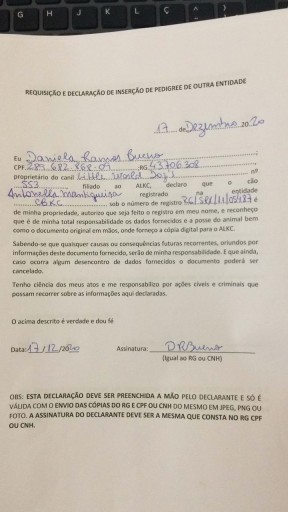 G H J K L Ç
REQUISIÇÃO E DECLARAÇÃO DE INSERÇÃO DE PEDIGREE DE OUTRA ENTIDADE
17 de Dezembro 2020
Eu Daniela Ramos Bueno,
CPF 289.682.868-09, RG 43706308,
proprietário do canil Little World Dog's nº
553 filiado ao ALKC, declaro que o cão
Antonella Mantiqueira registrado na entidade
CBKC sob o número de registro RG/SPP/11/05487 é
de minha propriedade, autorizo que seja feito o registro em meu nome, e reconheço
que é de minha total responsabilidade os dados fornecidos e a posse do animal bem
como o documento original em mãos, onde forneço a cópia digital para o ALKC.
Sabendo-se que quaisquer causas ou consequências futuras recorrentes, oriundos por
informações deste documento fornecido, serão de minha responsabilidade. E que ainda,
caso ocorra algum desencontro de dados fornecidos o documento poderá ser
cancelado.
Tenho ciência dos meus atos e me responsabilizo por ações cíveis e criminais que
possam recorrer sobre as informações aqui declaradas.
O acima descrito é verdade e dou fé
Data: 17/12/2020 Assinatura: DRBueno
(Igual ao RG ou CNH)
OBS: ESTA DECLARAÇÃO DEVE SER PREENCHIDA A MÃO PELO DECLARANTE E SÓ É
VÁLIDA COM O ENVIO DAS CÓPIAS DO RG E CPF OU CNH DO MESMO EM JPEG, PNG OU
FOTO. A ASSINATURA DO DECLARANTE DEVE SER A MESMA QUE CONSTA NO RG CPF
OU CNH.